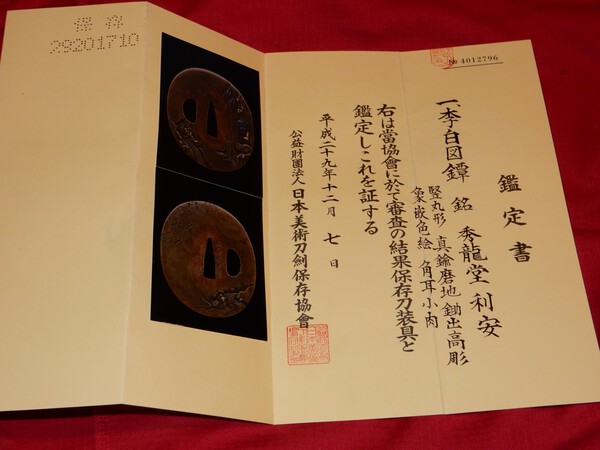 保存
29201710
№ 4012796
鑑定書
一、李白図鐔 銘 秀龍堂利安
竪丸形 真鍮磨地 鋤出高彫
象嵌色絵 角耳小肉
右は當協會に於て審査の結果保存刀装具と
鑑定しこれを証する
平成二十九年十二月七日
公益財團法人日本美術刀劍保存協會